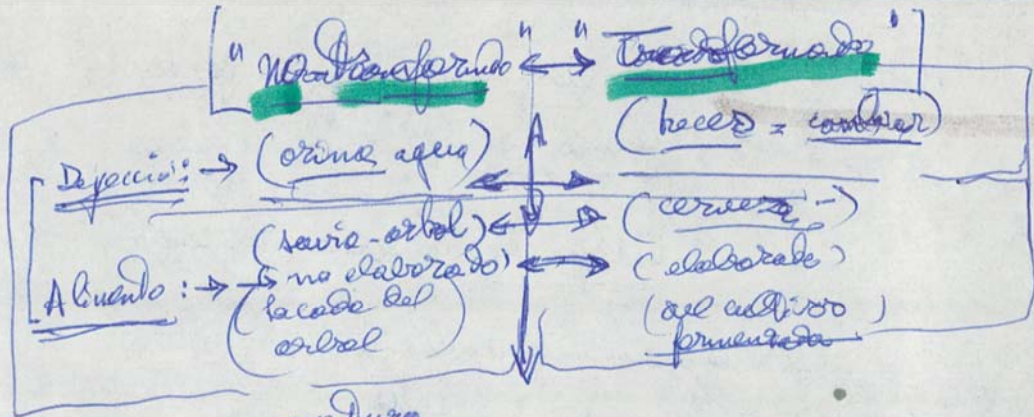 "no transformado" ↔ "Transformado"
Deyección: → (orina, agua) ↔ (heces =
(savia-arbol) ↔ (cerveza
Alimento: → no elaborado) ↔ (elaborado)
(sacada del arbol) (del cultivo) fermentada